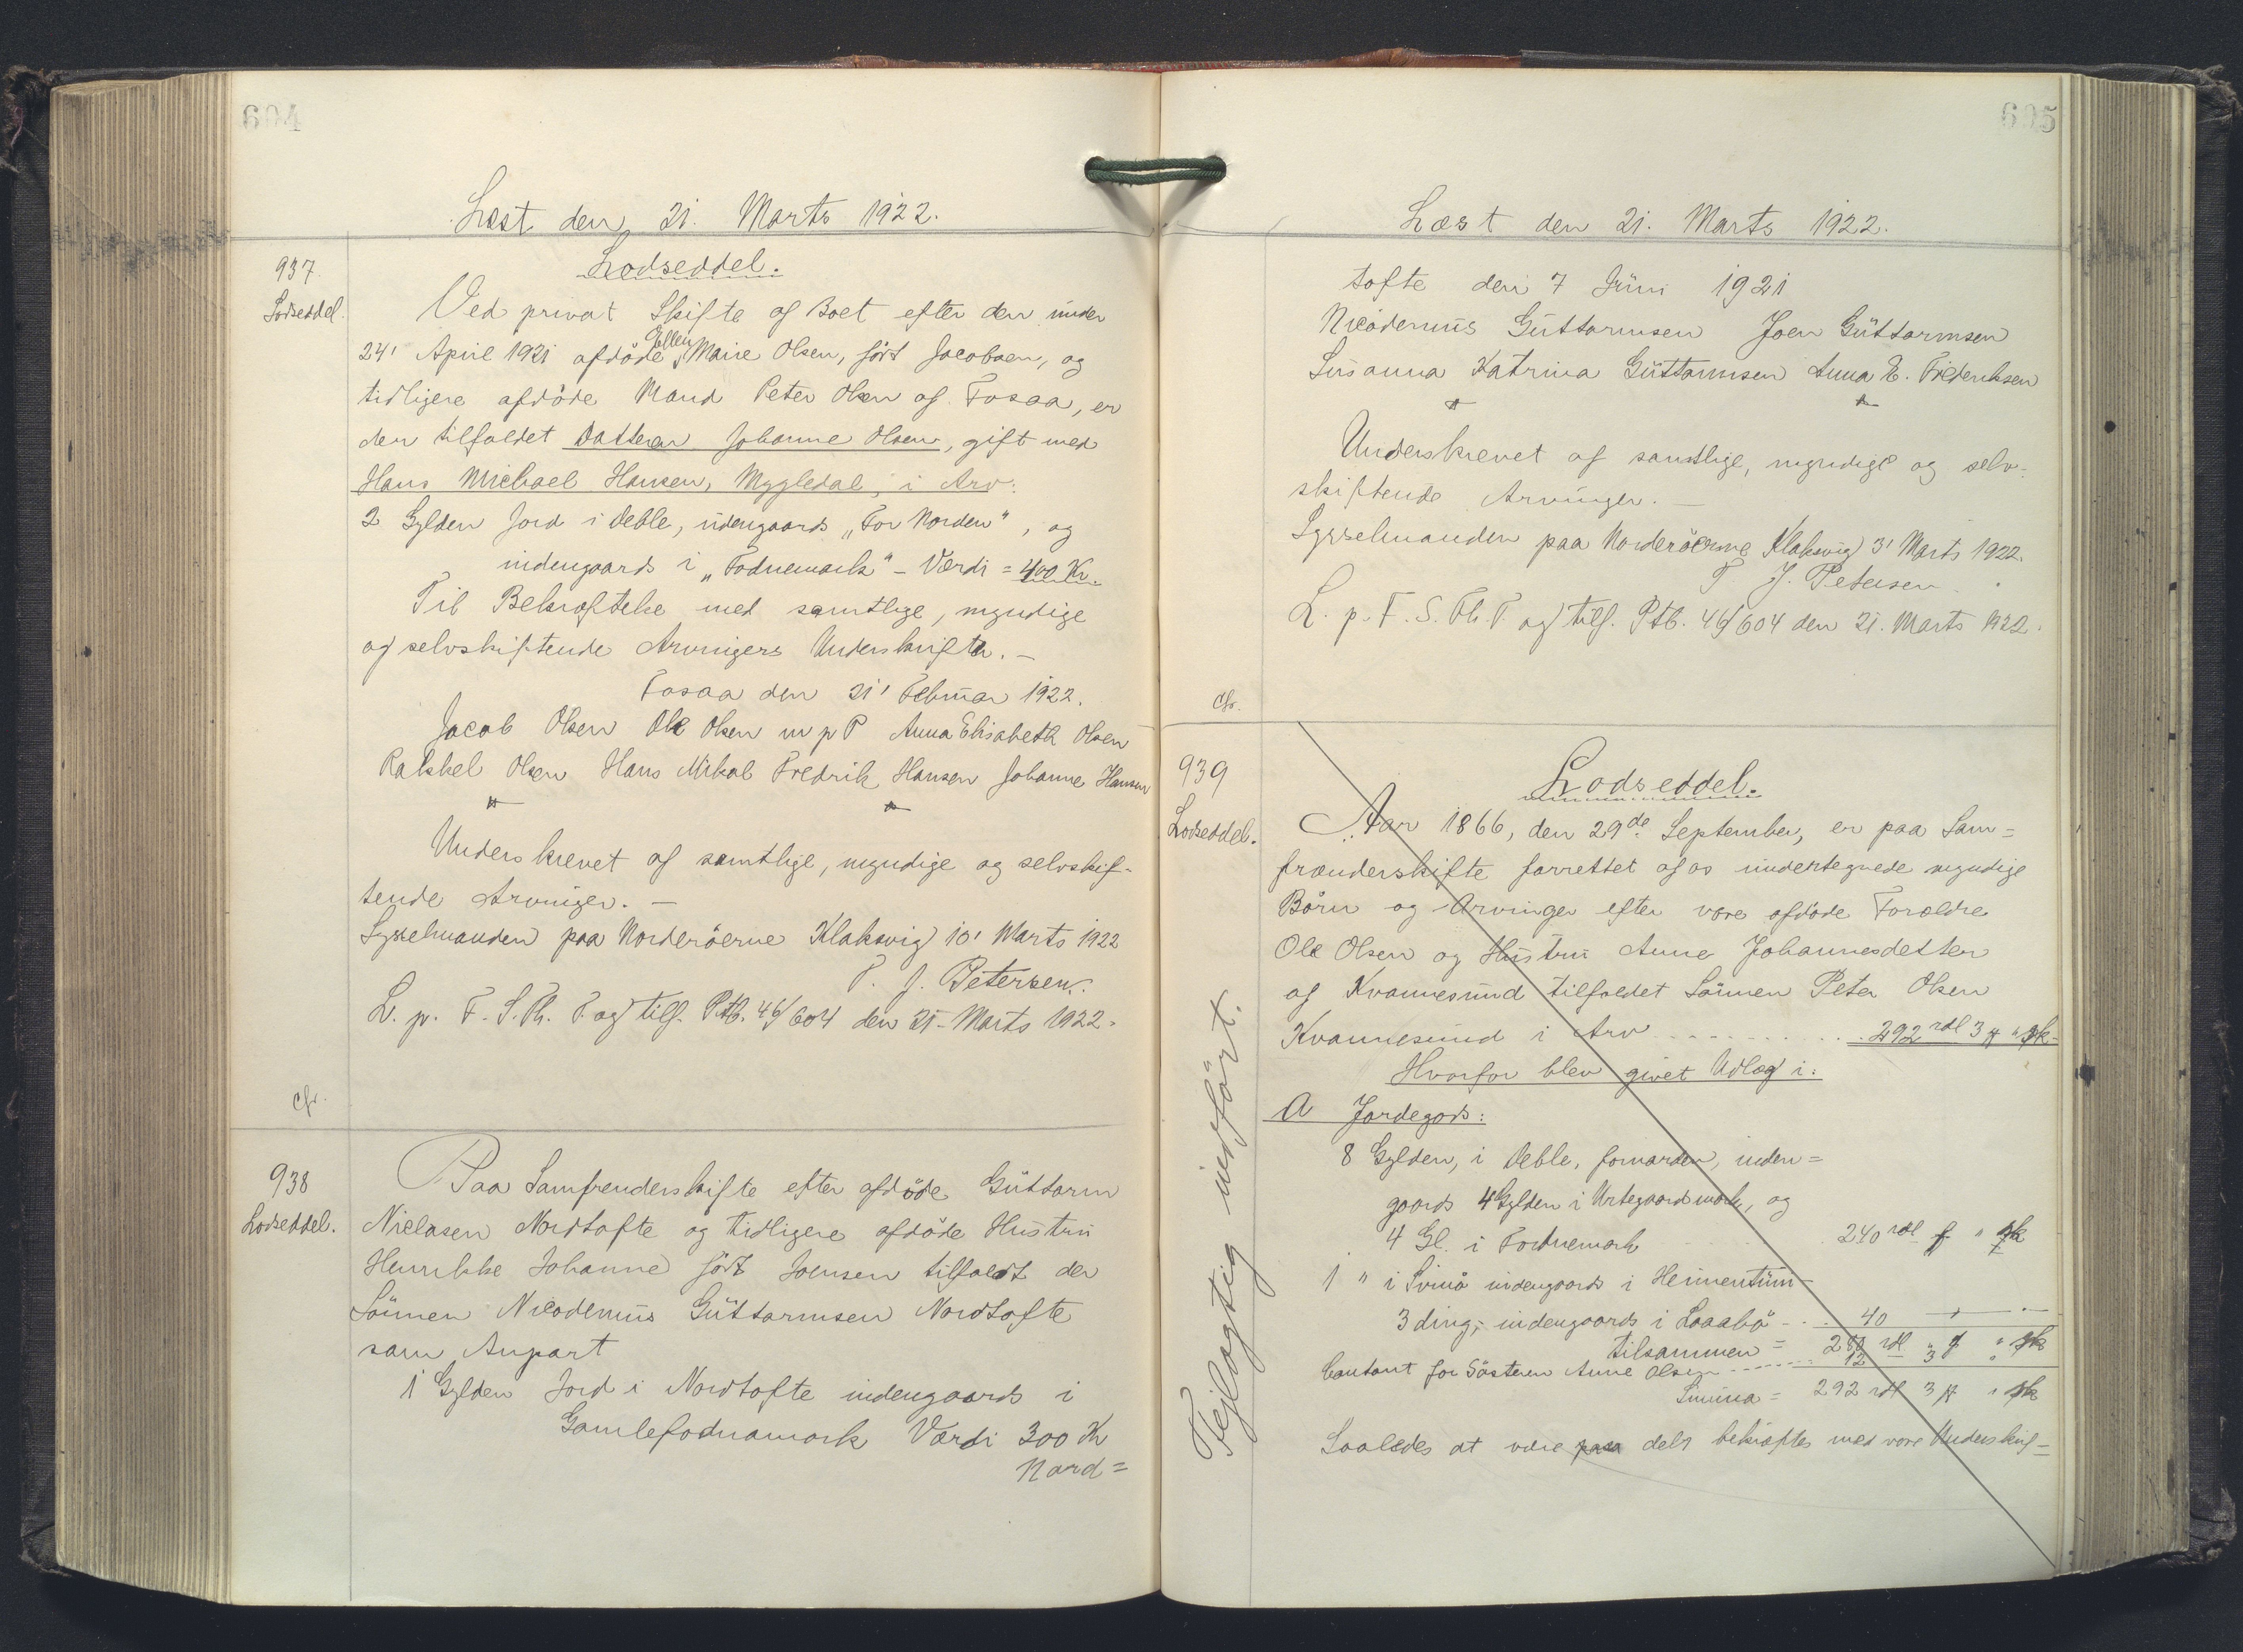 604
Læst den 21. Marts 1922.
937.
Lodseddel.
Lodseddel.
Ved privat Skifte af Boet efter den under
24' April 1921 afdöde Ellen Marie Olsen, født Jacobsen, og
tidligere afdöde Mand Peter Olsen af Fossaa, er
der tilfaldet Datteren Johanne Olsen, gift med
Hans Michael Hansen, Mygledal, i Arv:
2 Gylden Jord i Deble, udengaards "For Norden", og
indengaards i "Fodnemark" - Værdi = 400 Kr.
Til Bekræftelse med samtlige, myndige
og selvskiftende Arvingers Underskrifter. -
Fossaa den 21' Februar 1922.
Jacob Olsen Ole Olsen m p P Anna Elisabeth Olsen
Rakkel Olsen Hans Mikal Fredrik Hansen Johanne Hansen
Underskrevet af samtlige, myndige og selvskif-
tende Arvinger. -
Sysselmanden paa Norderöerne Klaksvig 10' Marts 1922
P. J. Petersen.
L. p. F. S. Th. P. og tilf. Ptb. 46/604 den 21. Marts 1922.
cfr.
938
Lodseddel.
Paa Samfrenderskifte efter afdöde Güttorm
Niclasen Nordtofte og tidligere afdöde Hustru
Henrikke Johanne født Joensen tilfaldt der
Sönnen Nicodemus Güttormsen Nordtofte
som Anpart
1 Gylden Jord i Nordtofte indengaards i
Gamlefodnamork Værdi 300 Kr
Nord=
605
Læst den 21. Marts 1922.
tofte den 7 Juni 1921
Nicodemus Güttormsen Joen Güttormsen
Susanna Katrina Güttormsen Anna E. Frederiksen
Underskrevet af samtlige, myndige og selv-
skiftende Arvinger. -
Sysselmanden paa Norderöerne Klaksvig 3' Marts 1922.
P J. Petersen.
L. p. F. S. Th. P. og tilf. Ptb. 46/604 den 21. Marts 1922.
cfr.
939
Lodseddel.
Lodseddel.
Aar 1866, den 29de September, er paa Sam=
frænderskifte forrettet af os undertegnede myndige
Börn og Arvinger efter vore afdöde Forældre
Ole Olsen og Hustru Anne Johannesdatter
af Kvannesund tilfaldet Sönnen Peter Olsen
Kvannesund i Arv ........... 292 rdl 3 ƒ " sk
Hvorfor blev givet Udlæg i:
A Jordegods:
8 Gylden, i Deble, fornorden, inden=
gaards 4 Gylden i Urtegaardmork, og
4 Gl. i Fodnemark 240 rdl ƒ " sk
1 " i Svinö indengaards i Heimentün -
3 ding; indengaards i Laaabö - .. 40
tilsammen = 280 rdl " ƒ " sk
Contant for Söstren Anne Olsen ........ 12 3 "
Summa = 292 rdl 3 ƒ " sk
Saaledes at være paa delt bekræftes med vore Underskrif=
Fejlagtig indfört.